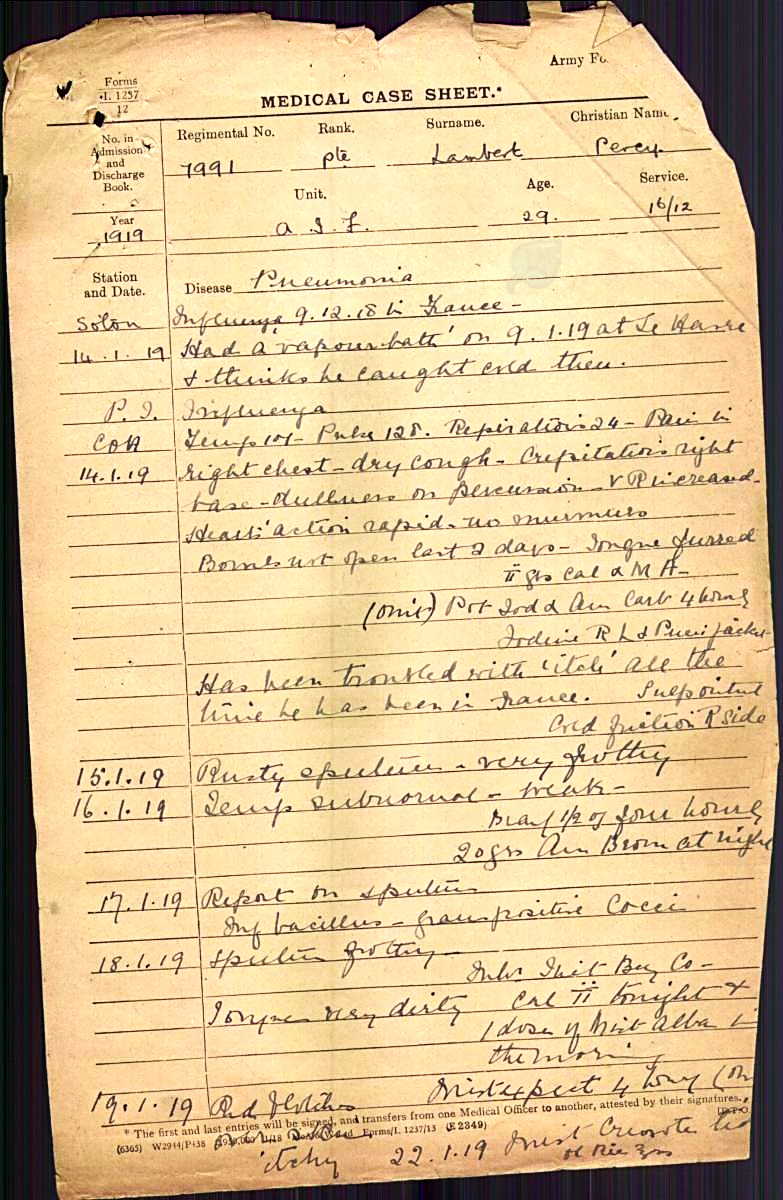 Forms
I. 1237
12
Army Fo
MEDICAL CASE SHEET.*
No. in Admission and Discharge Book.
Regimental No. Rank. Surname. Christian Name.
7991 Pte Lambert Percy
Unit. Age. Service.
Year
1919
A I F. 29. 16/12
Station and Date.
Disease Pneumonia
Soton Influenza 9.12.18 in France -
14.1.19 Had a 'vapour bath' on 9.1.19 at Le Havre
& thinks he caught cold then.
P. I. Influenza
COA Temp 101 - Pulse 128. Respirations 24 - Pain in
14.1.19 right chest - dry cough - Crepitations right
base - dullness on percussion - V R increased -
Hearts' action rapid - no murmurs
Bowels not open last 2 days - Tongue furred
ii grs Cal & M A -
(Omit) Pot Iod & Am Carb 4 hourly
Iodine R L & Pneu jacket
Has been troubled with 'itch' all the
time he has been in France.
Cold friction R side
15.1.19 Rusty sputum - very frothy
16.1.19 Temp subnormal - weak -
Brandy 1/2 oz four hourly
20 grs Am Brom at night
17.1.19 Report on sputum
Inf bacillus - gram positive Cocci
18.1.19 Sputum frothy -
Co -
Tongue very dirty Cal ii tonight &
1 dose of Mist Alba in
the morning
19.1.19 Red blotches Mist expect 4 hourly
* The first and last entries will be signed, and transfers from one Medical Officer to another, attested by their signatures.
(6365) W2944/P438 Forms/I. 1237/13 (E 2349)
itchy 22.1.19 Mist Creosote